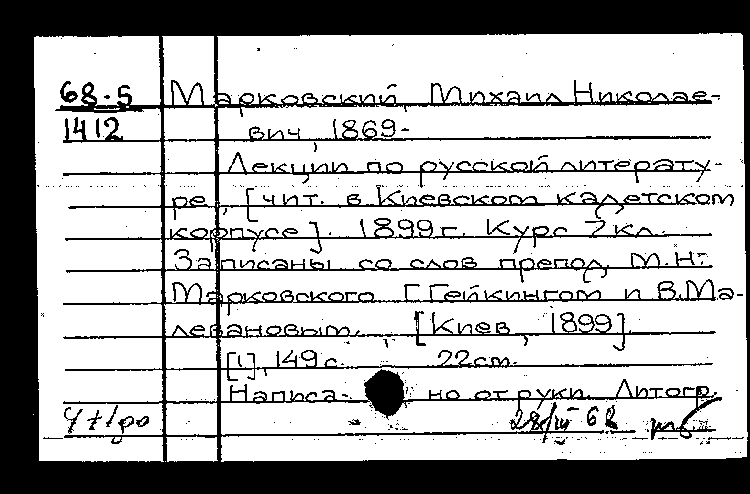 68-5 Марковский, Михаил Николае-
1412 вич, 1869-
Лекции по русской литерату-
ре, [чит. в Киевском кадетском
корпусе]. 1899 г. Курс 7 кл.
Записаны со слов препод. М.Н.
Марковского Г. Гейкингом и В. Ма-
левановым. [Киев, 1899]
[1], 149 с. 22 см.
Написа- но от руки. Литогр.
28/III 68